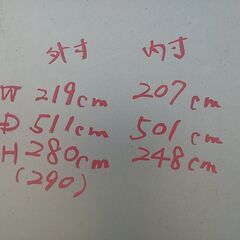 外寸 内寸
W 219cm 207cm
D 511cm 501cm
H 280cm 248cm
(290)